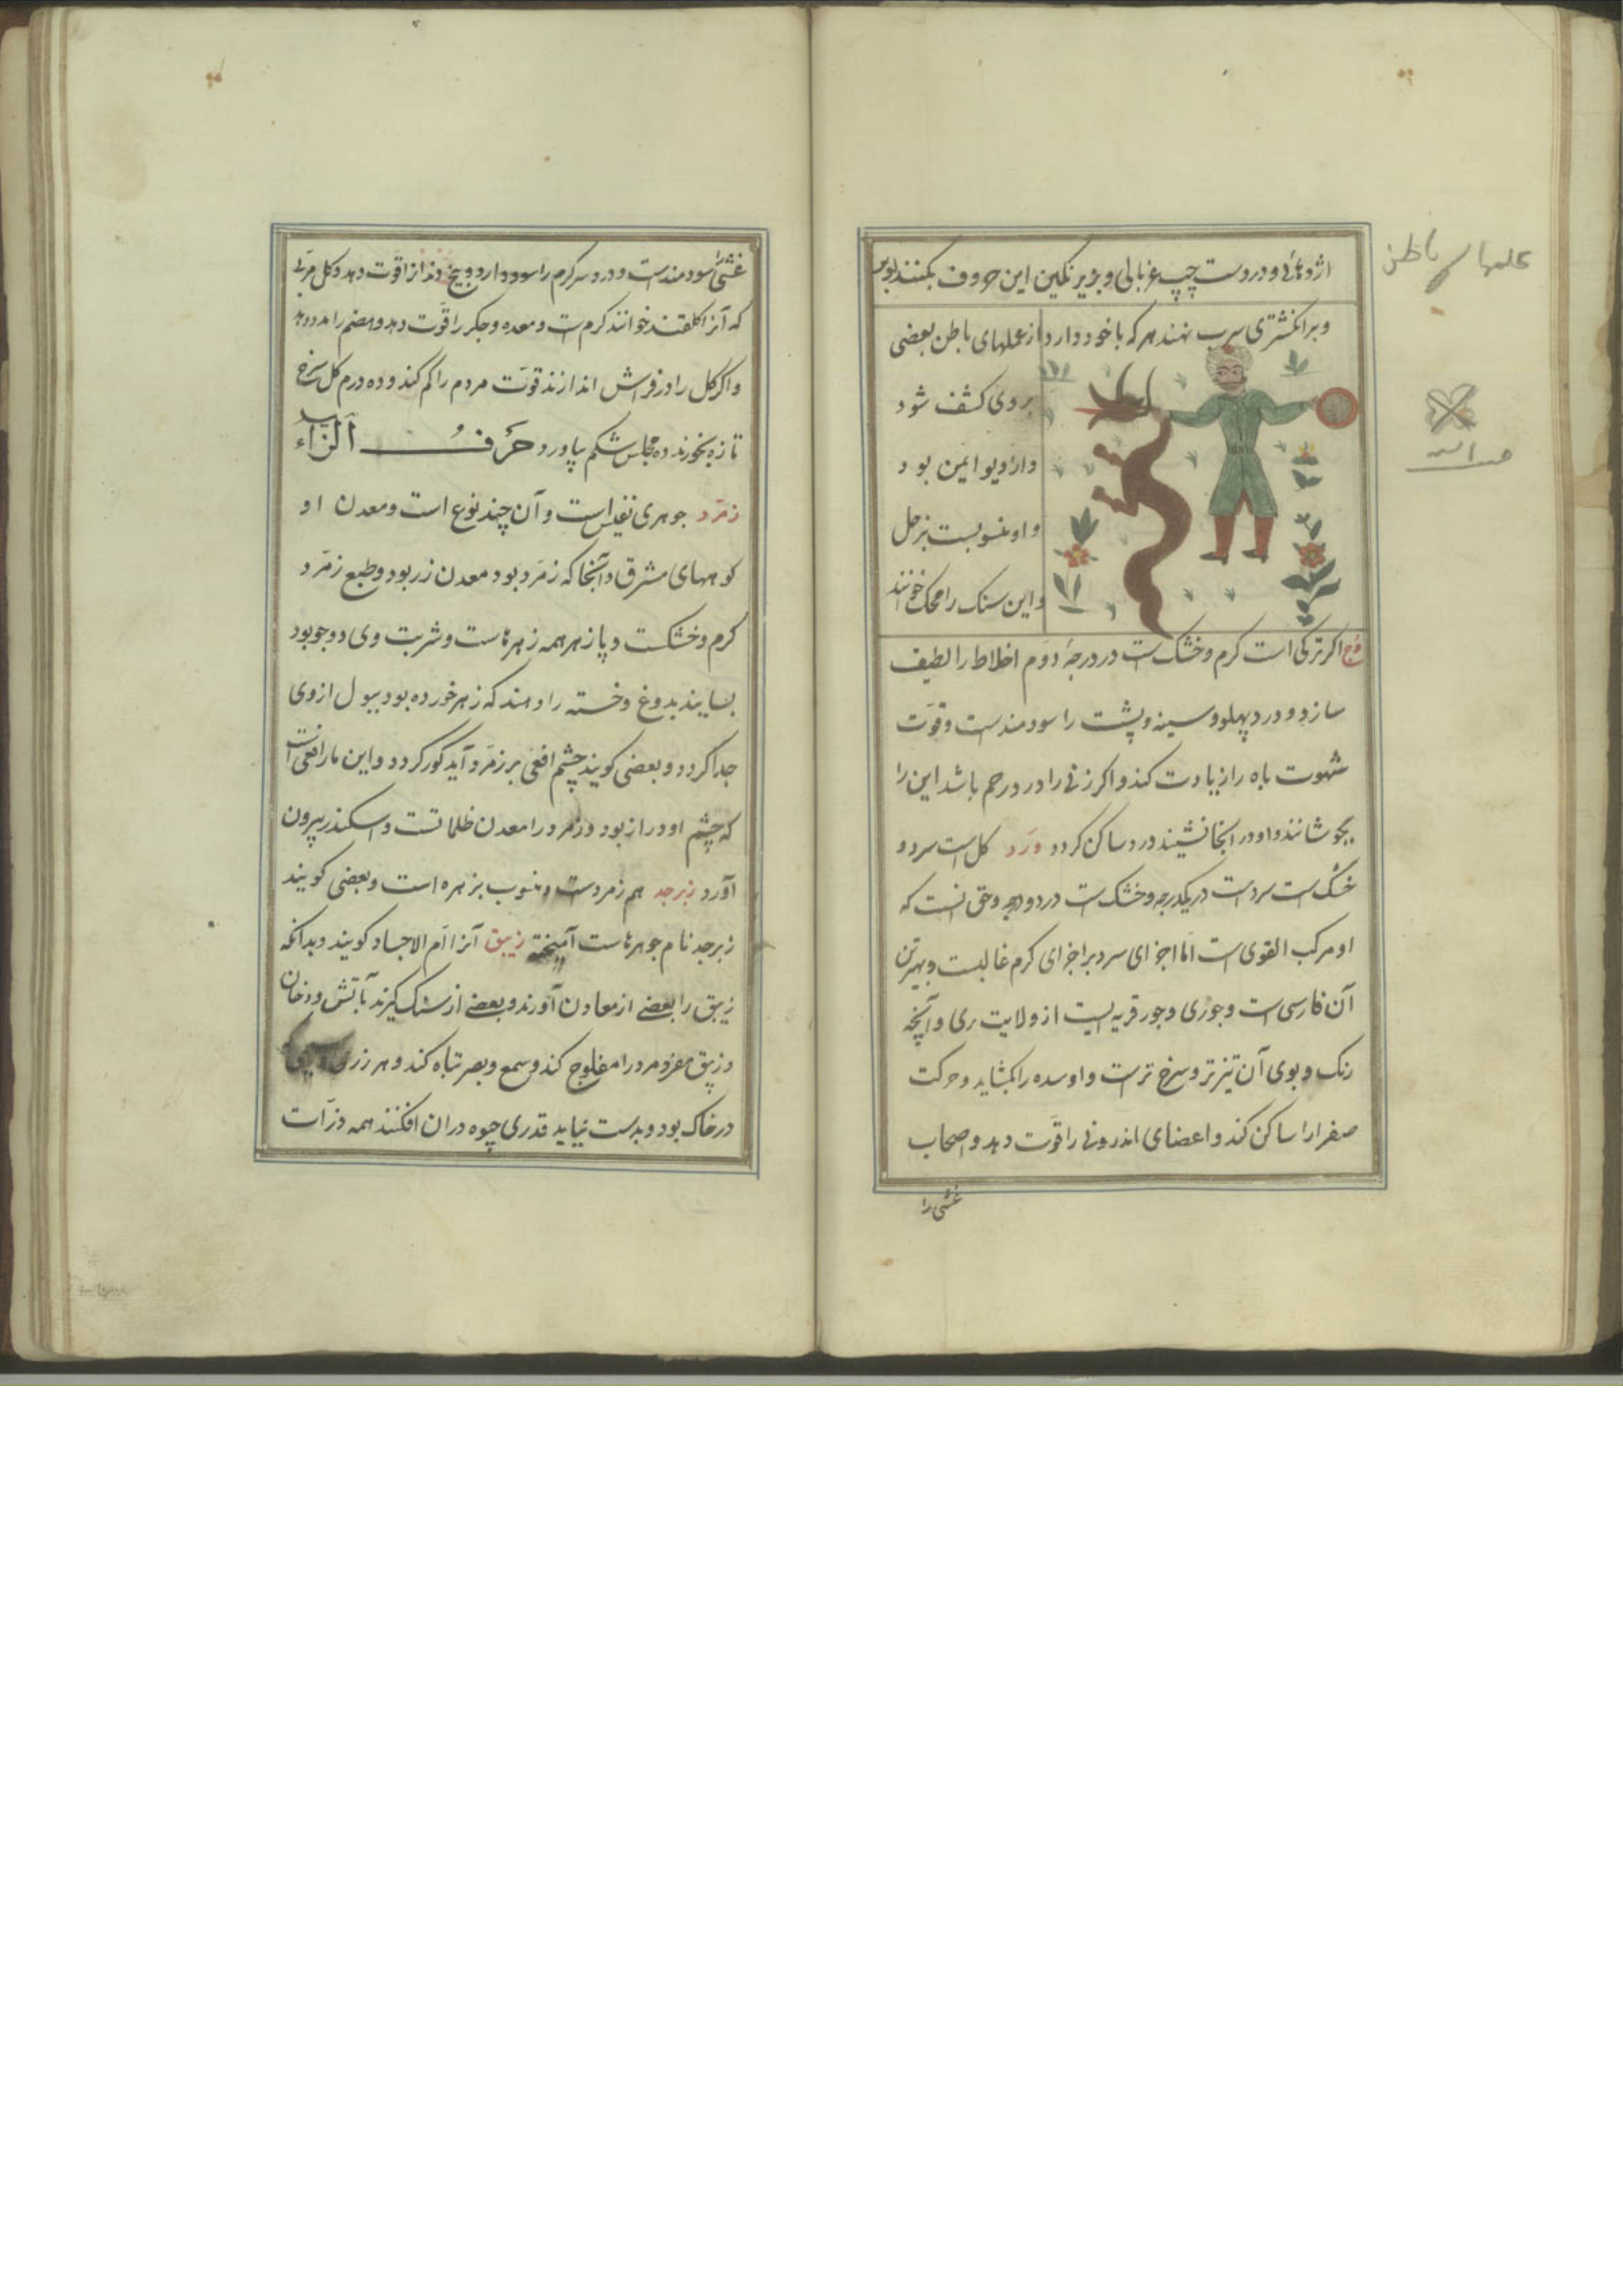 اژدهائی و در دست چپ غربالی و بزیر نکین این حروف بکنند
و بر انکشتری سرب نهند هر که با خود دارد از عملهای باطن بعضی
بروی کشف شود
و از دیو ایمن بود
و او منسوبست بزحل
و این سنک را محک خوانند
وج اکر ترکی است کرم و خشک است در درجهٔ دوم اخلاط را لطیف
سازد و درد پهلو و سینه و پشت را سودمند است و قوت
شهوت باه را زیادت کند و اکر زنی را درد رحم باشد این را
بجوشانند و او در انجا نشیند درد ساکن کردد ورد کل است سرد و
خشک است سرد است در یکدرجه و خشک است در دو درجه و حق انست که
او مرکب القوی است اما اجزای سرد بر اجزای کرم غالبست و بهترین
آن فارسی است و جوری و جور قریه‌یست از ولایت ری و آنچه
رنک و بوی آن تیزتر و سرخ تر است و او سده را بکشاید و حرکت
صفرا را ساکن کند و اعضای اندرونی را قوت دهد و اصحاب
غشی را
عملهای باطن
غشی سودمند است و درد سر کرم را سود دارد و بیخ دندانرا قوت دهد و کل مربی
که آنرا کلقند خوانند کرم است و معده و جکر را قوت دهد و هضم را مدد دهد
و اکر کل را در فراش اندازند قوت مردم را کم کند و ده درم کل سرخ
تازه بخورند ده مجلس شکم بیاورد حرف الزاء
زمرد جوهری نفیس است و آن چند نوع است و معدن او
کوههای مشرق و آنجا که زمرد بود معدن زر بود و طبع زمرد
کرم و خشکست و پازهر همه زهرهاست و شربت وی دو جو بود
بسایند بدوغ و خسته را دهند که زهر خورده بود ببول از وی
جدا کردد و بعضی کویند چشم افعی بر زمرد آید کور کردد و این مار افعی است
که چشم او دراز بود و زمرد را معدن ظلماتست و اسکندر بیرون
آورد زبرجد هم زمردست و منسوب بزهره است و بعضی کویند
زبرجد نام جوهرهاست آمیخته زیبق آنرا ام الاجساد کویند و بدانکه
زیبق را بعضی از معادن آورند و بعضی از سنک کیرند بآتش و دخان
و زیبق مغز مرد را مفلوج کند و سمع و بصر تباه کند و هر زر
در خاک بود و بدست نیاید قدری جیوه در ان افکنند همه ذرات